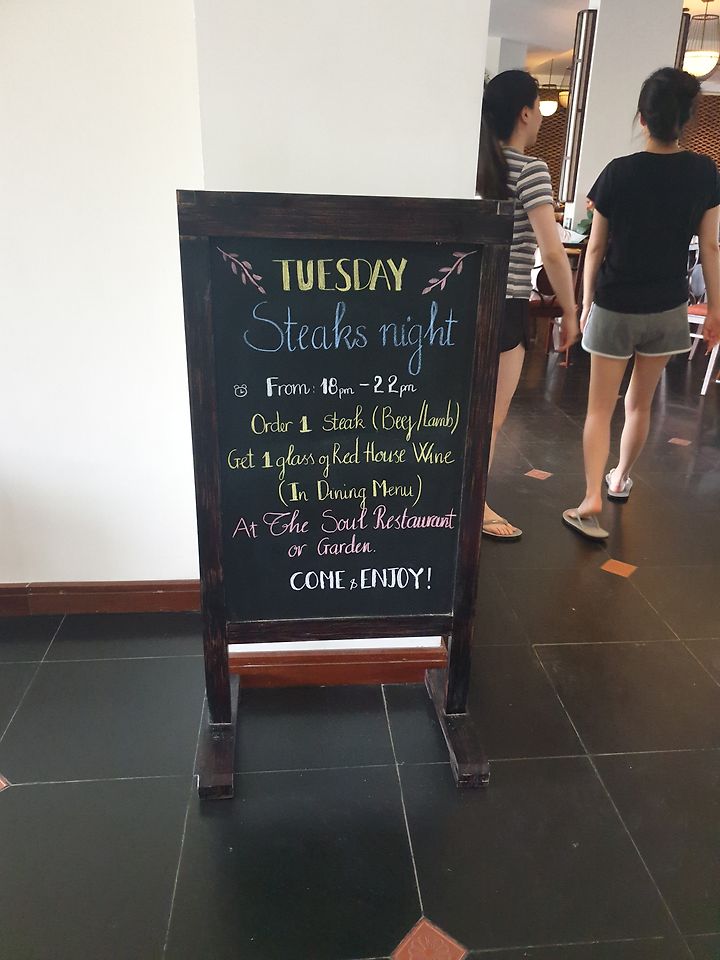 TUESDAY
Steaks night
From: 18pm - 22pm
Order 1 Steak (Beef/Lamb)
Get 1 glass of Red House Wine
(In Dining Menu)
At The Soul Restaurant
or Garden.
COME & ENJOY!